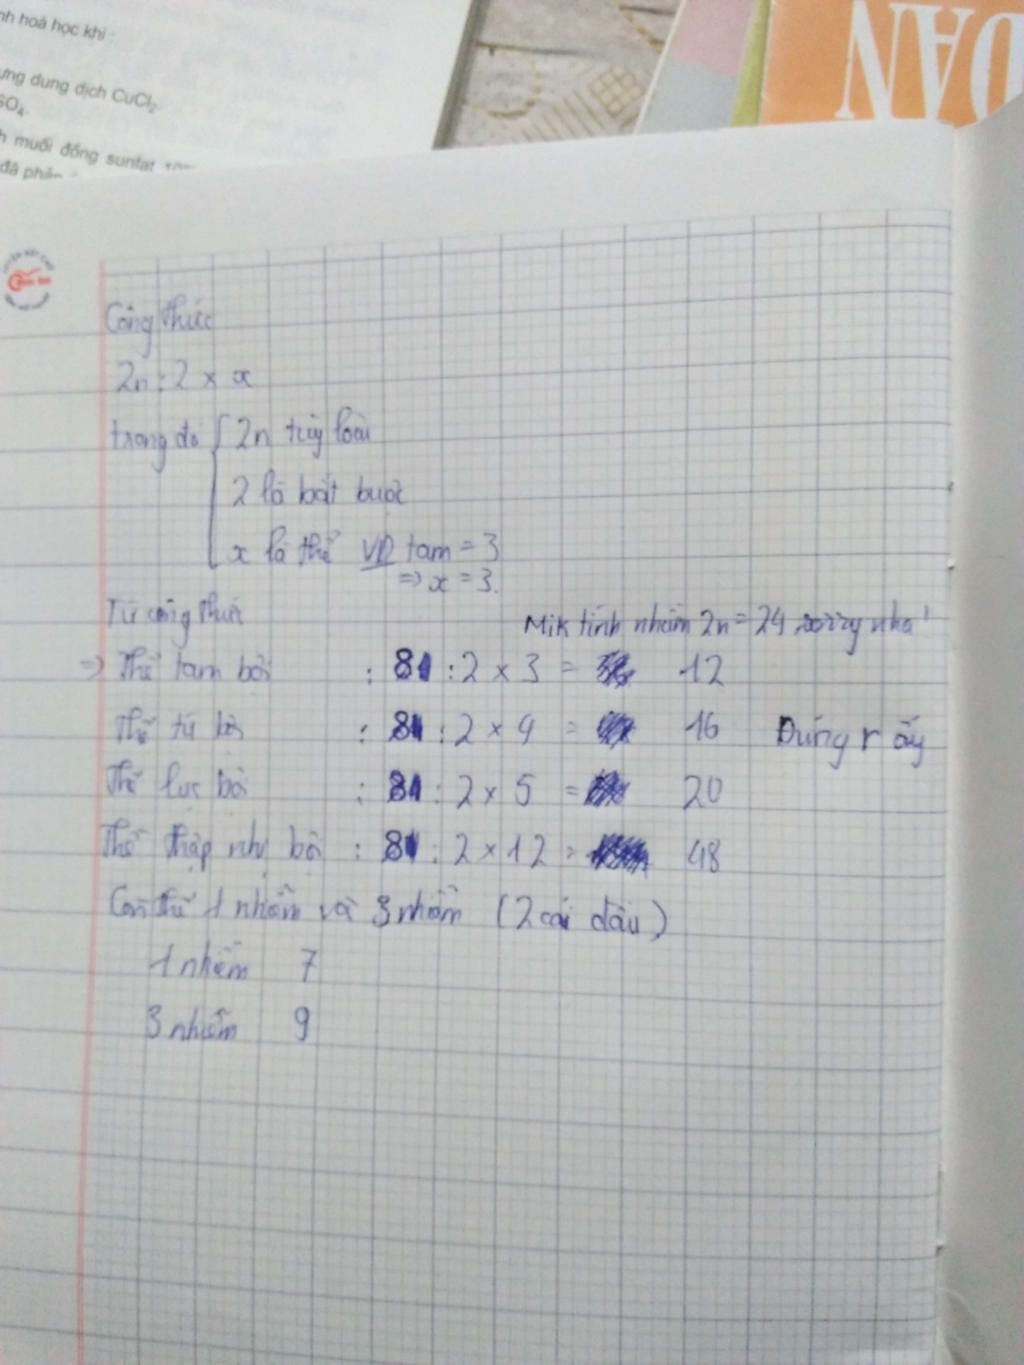 nh hoà học khi :
ưng dung dịch CuCl2
SO4.
h muối đồng sunfat
đã phản
DAN
Công thức
2n : 2 × x
trong đó { 2n tùy loài
2 là bắt buộc
x là thể VD tam = 3
=> x = 3.
Từ công thức
Mik tính nhầm 2n = 24 sorry nha!
=> Thể tam bội : 8 : 2 × 3 = 12
Thể tứ bội : 8 : 2 × 4 = 16 Đúng r ấy
Thể lục bội : 8 : 2 × 5 = 20
Thể thập nhị bội : 8 : 2 × 12 = 48
Còn thể 1 nhiễm và 3 nhiễm (2 cái đầu)
1 nhiễm 7
3 nhiễm 9